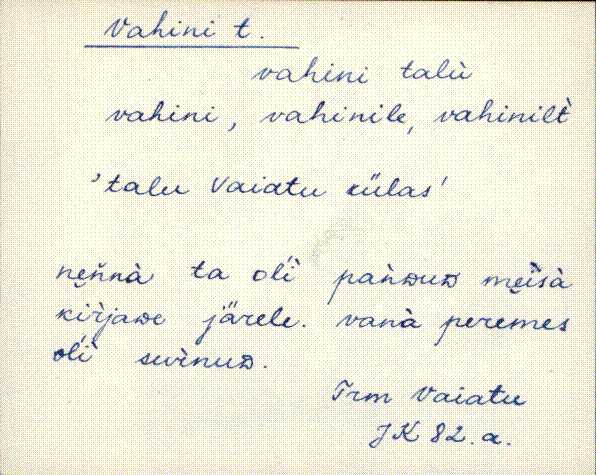 Vahini t.
vahini talù
vahini, vahinile, vahinilt̀
'talu Vaiatu külas'
nen̄nà ta oĺì pàǹᴅuᴅ mēìsà
kiŕjaᴅe järele. vanà peremes
oĺì suŕnuᴅ.
Trm Vaiatu
JK 82.a.